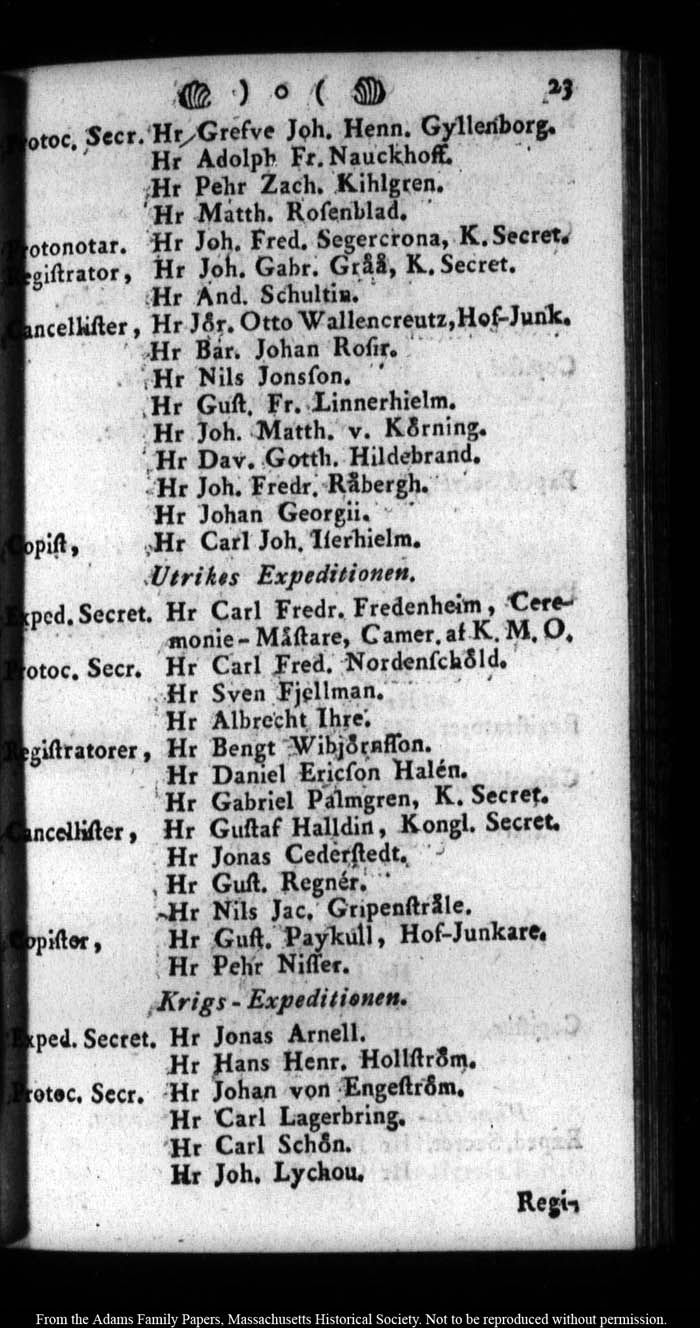 ) o ( 23
Protoc. Secr. Hr Grefve Joh. Henn. Gyllenborg.
Hr Adolph Fr. Nauckhoff.
Hr Pehr Zach. Kihlgren.
Hr Matth. Roſenblad.
Protonotar. Hr Joh. Fred. Segercrona, K. Secret.
Regiſtrator, Hr Joh. Gabr. Gråå, K. Secret.
Hr And. Schultin.
Cancelliſter, Hr Jör. Otto Wallencreutz, Hof-Junk.
Hr Bar. Johan Roſir.
Hr Nils Jonsſon.
Hr Guſt. Fr. Linnerhielm.
Hr Joh. Matth. v. Körning.
Hr Dav. Gotth. Hildebrand.
Hr Joh. Fredr. Råbergh.
Hr Johan Georgii.
Copiſt, Hr Carl Joh. Iſerhielm.
Utrikes Expeditionen.
Exped. Secret. Hr Carl Fredr. Fredenheim, Cere-
monie-Mäſtare, Camer. af K. M. O.
Protoc. Secr. Hr Carl Fred. Nordenſchöld.
Hr Sven Fjellman.
Hr Albrecht Ihre.
Regiſtratorer, Hr Bengt Wibjörnſſon.
Hr Daniel Ericſon Halén.
Hr Gabriel Palmgren, K. Secret.
Cancelliſter, Hr Guſtaf Halldin, Kongl. Secret.
Hr Jonas Cederſtedt.
Hr Guſt. Regnér.
Hr Nils Jac. Gripenſtråle.
Copiſter, Hr Guſt. Paykull, Hof-Junkare.
Hr Pehr Niſſer.
Krigs-Expeditionen.
Exped. Secret. Hr Jonas Arnell.
Hr Hans Henr. Hollſtröm.
Protoc. Secr. Hr Johan von Engeſtröm.
Hr Carl Lagerbring.
Hr Carl Schön.
Hr Joh. Lychou.
Regi-
From the Adams Family Papers, Massachusetts Historical Society. Not to be reproduced without permission.